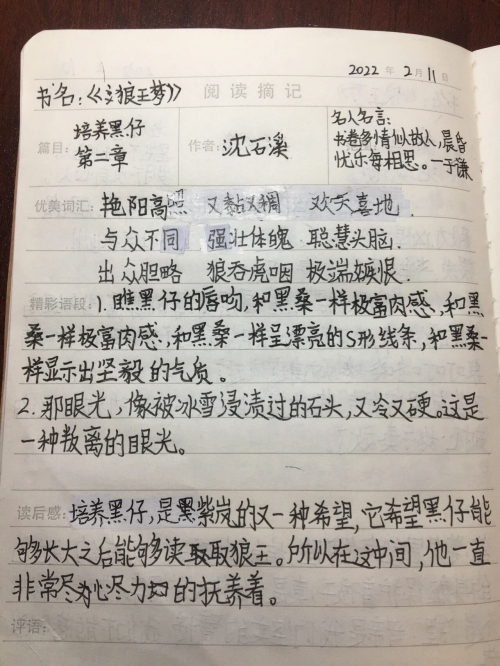 2022 年 2 月 11 日
书名：《狼王梦》 阅读摘记
篇目： 培养黑仔 第二章 作者： 沈石溪 名人名言：
书卷多情似故人，晨昏
忧乐每相思。—于谦
优美词汇： 艳阳高照 又黏又稠 欢天喜地．
与众不同 强壮体魄 聪慧头脑．
出众胆略 狼吞虎咽 极端嫉恨．
精彩语段：1. 瞧黑仔的唇吻，和黑桑一样极富肉感，和黑
桑一样极富肉感，和黑桑一样呈漂亮的S形线条，和黑桑一
样显示出坚毅的气质。
2. 那眼光，像被冰雪浸渍过的石头，又冷又硬。这是
一种叛离的眼光。
读后感：培养黑仔，是紫岚的又一种希望，它希望黑仔能
够长大之后能够读取狼王。所以在这中间，他一直
非常尽心尽力的抚养着。
评语：